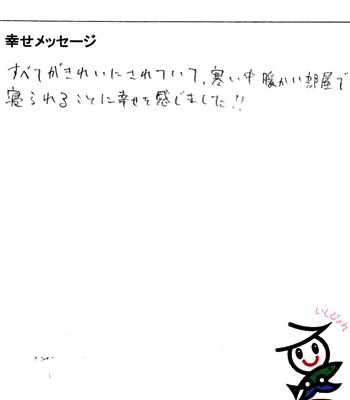 幸せメッセージ
すべてがきれいにされていて、寒い中暖かい部屋で
寝られることに幸せを感じました!!